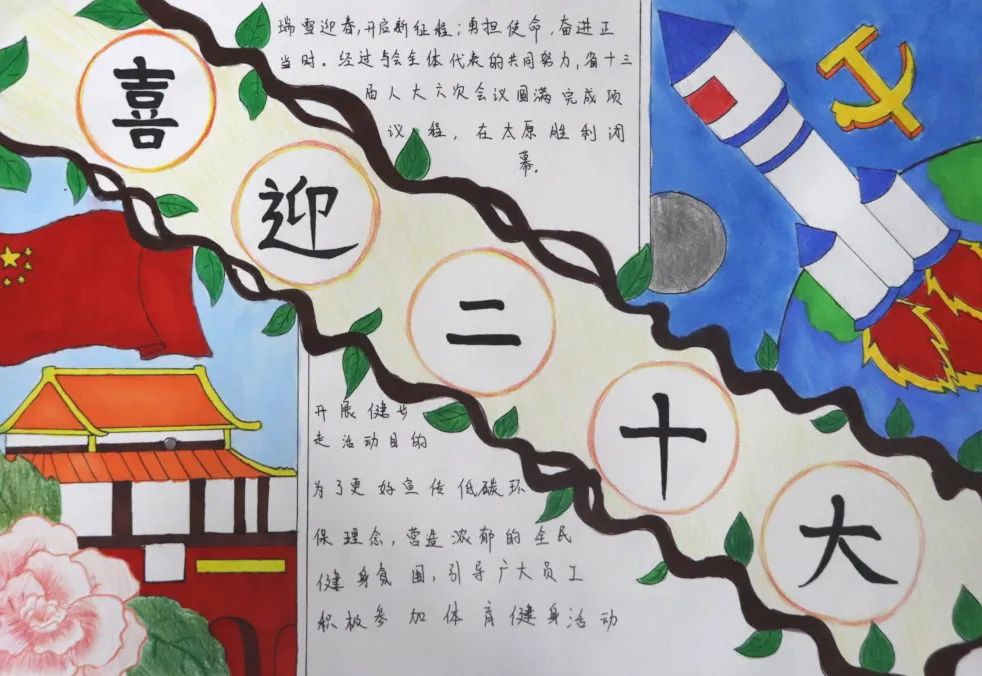 喜迎二十大
瑞雪迎春,开启新征程;勇担使命,奋进正
当时。经过与会全体代表的共同努力,省十三
届人大六次会议圆满完成项
议程,在太原胜利闭
幕。
开展健步
走活动目的
为了更好宣传低碳环
保理念,营造浓郁的全民
健身氛围,引导广大员工
积极参加体育健身活动